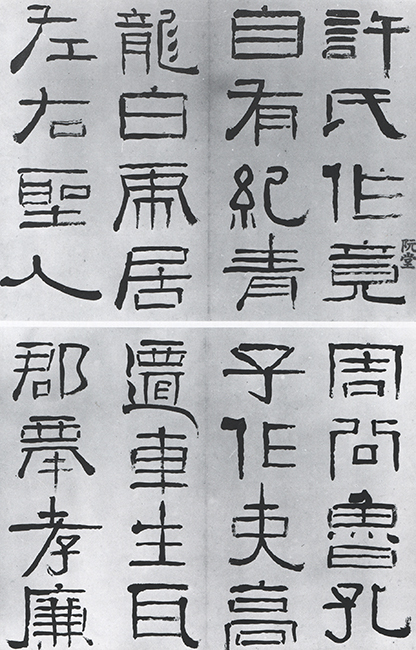 許氏作竟
阮堂
自有紀青
龍白虎居
左右聖人
周公魯孔
子作吏高
遷車生耳
郡舉孝廉